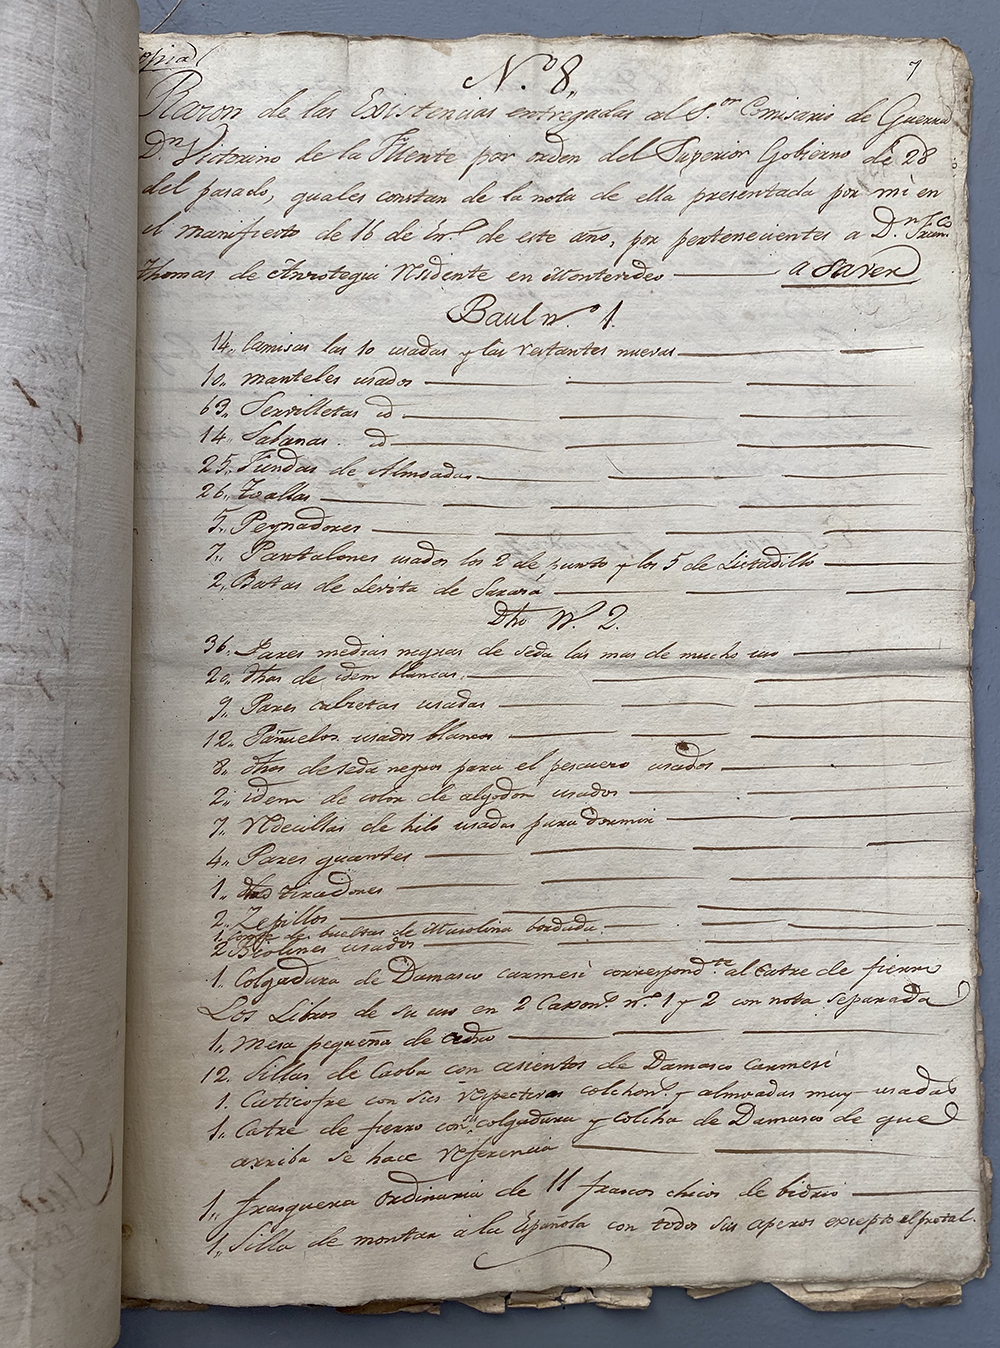 Copia
7
N.º 8,,
Razon de las Existencias entregadas al S.or Comisario de Guerra
D.n Victorino de la Fuente por orden del Superior Gobierno de 28
del pasado, quales constan de la nota de ella presentada por mi en
el manifiesto de 16 de En.º de este año, por pertenecientes a D.n Fran.co
Thomas de Anzotegui residente en Montevideo a saver
Baul n.º 1.
14,, Camisas las 10 usadas y las restantes nuevas
10,, manteles usados
63,, Servilletas id
14,, Sabanas id
25,, Fundas de Almoadas
26,, Toallas
5,, Peynadores
7,, Pantalones usados los 2 de punto y los 5 de Listadillo
2,, Batas de Levita de Sarasá
Dho N.º 2.
36,, Pares medias negras de seda las mas de mucho uso
20,, dhas de idem blancas
9,, Pares calzetas usadas
12,, Pañuelos usados blancos
8,, dhos de seda negros para el pescuezo usados
2,, idem de color de algodon usados
7,, redecillas de hilo usadas para dormir
4,, Pares guantes
1,, dho tiradores
2,, Zepillos
1,, de bueltas de Musolina bordada
2 Violines usados
1,, Colgadura de Damasco carmesi correspond.te al catre de fierro
Los Libros de su uso en 2 Caxon.s n.º 1 y 2 con nota separada
1,, mesa pequeña de cedro
12. Sillas de Caoba con asientos de Damasco Carmesi
1. Catrecofre con sus respectivos colchon.s y almoadas muy usadas
1,, Catre de fierro con colgadura y colcha de Damasco de que
arriba se hace referencia
1,, frasquera ordinaria de 11 frascos chicos de bidrio
1,, Silla de montar a la Española con todos sus aperos excepto el pretal.